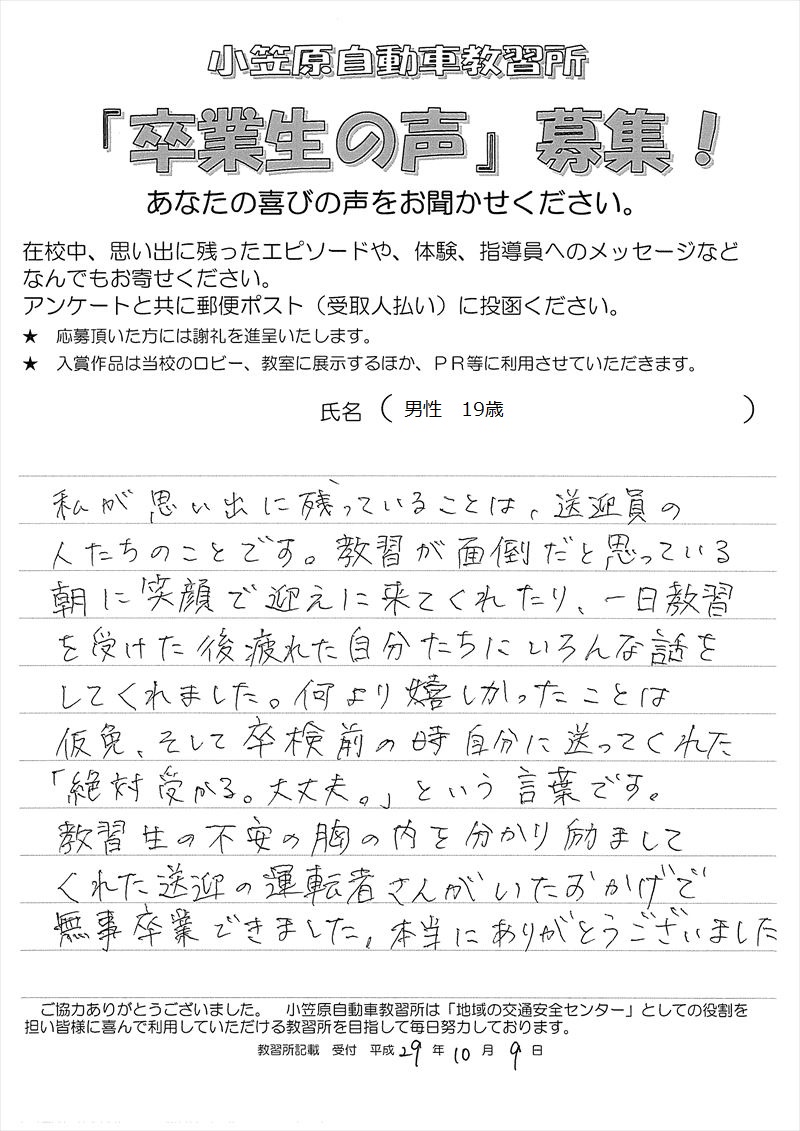 小笠原自動車教習所
「卒業生の声」募集！
あなたの喜びの声をお聞かせください。
在校中、思い出に残ったエピソードや、体験、指導員へのメッセージなど
なんでもお寄せください。
アンケートと共に郵便ポスト（受取人払い）に投函ください。
★　応募頂いた方には謝礼を進呈いたします。
★　入賞作品は当校のロビー、教室に展示するほか、ＰＲ等に利用させていただきます。
氏名（男性　19歳　）
私が思い出に残っていることは、送迎員の
人たちのことです。教習が面倒だと思っている
朝に笑顔で迎えに来てくれたり、一日教習
を受けた後疲れた自分たちにいろんな話を
してくれました。何より嬉しかったことは
仮免、そして卒検前の時自分に送ってくれた
「絶対受かる。大丈夫。」という言葉です。
教習生の不安の胸の内を分かり励まして
くれた送迎の運転者さんがいたおかげで
無事卒業できました。本当にありがとうございました
ご協力ありがとうございました。　小笠原自動車教習所は「地域の交通安全センター」としての役割を
担い皆様に喜んで利用していただける教習所を目指して毎日努力しております。
教習所記載　受付　平成 29 年 10 月 9 日